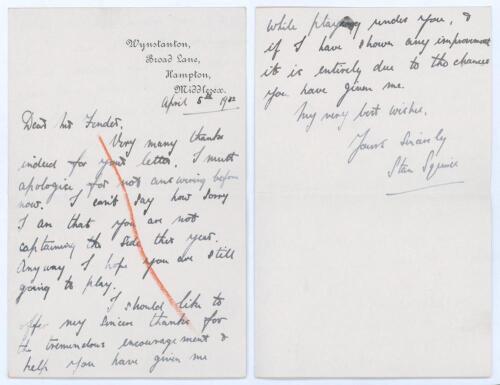 Wynstanton,
Broad Lane,
Hampton,
Middlesex.
April 5th 1932
Dear Mr Fender,
Very many thanks
indeed for your letter. I must
apologise, for not answering before
now. I can't say how sorry
I am that you are not
captaining the side this year.
Anyway I hope you are still
going to play.
I should like to
offer my sincere thanks for
the tremendous encouragement &
help you have given me
while playing under you, &
if I have shown any improvement
it is entirely due to the chances
you have given me.
My very best wishes.
Yours Sincerely
Stan Squires